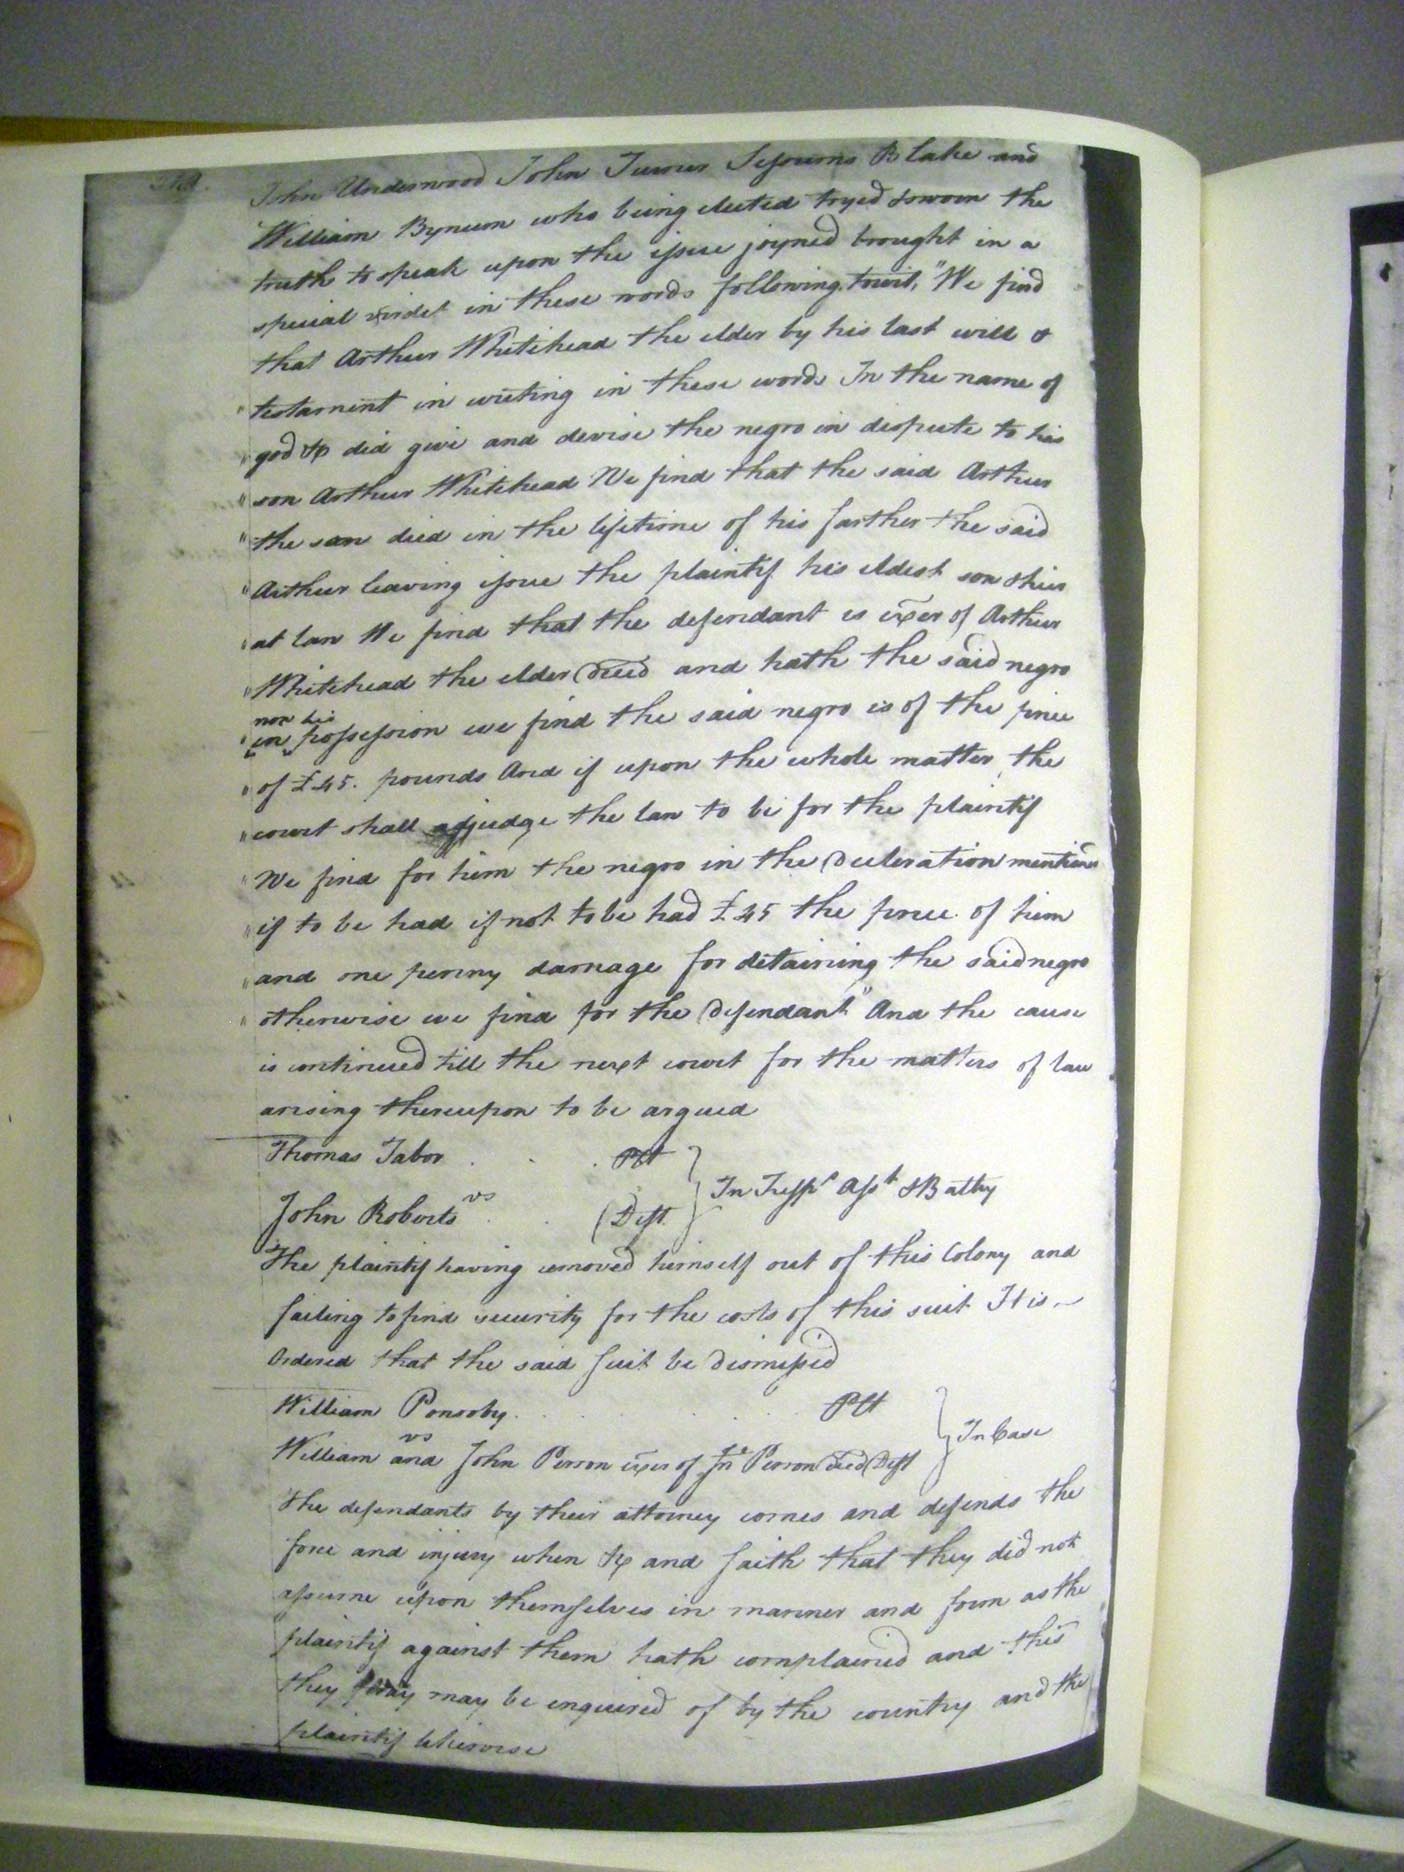 John Underwood John Turner Sejourns Blake and
William Bynum who being elected tryed & sworn the
truth to speak upon the issue joyned brought in a
special virdet in these words following, towit, "We find
that Arthur Whitehead the elder by his last will &
" testament in writing in these words In the name of
" god &c did give and devise the negro in dispute to his
" son Arthur Whitehead We find that the said Arthur
" the son died in the lifetime of his farther the said
" Arthur leaving issue the plaintif his eldest son & heir
" at law We find that the defendant is exer of Arthur
" Whitehead the elder Decd and hath the said negro
now his
" in possession we find the said negro is of the price
" of £45. pounds And if upon the whole matter the
" court shall adjudge the law to be for the plaintif
" We find for him the negro in the Decleration mentiond
" if to be had if not to be had £45 the price of him
" and one penny damage for detaining the said negro
" otherwise we find for the Defendant" And the cause
is continued till the next court for the matters of law
arising thereupon to be argued
Thomas Tabor . . . Plt
vs } In Tresps Asst & Battry
John Roberts . . Deft
The plaintif having removed himself out of this Colony and
failing to find security for the costs of this suit It is
Ordered that the said suit be Dismissed
William Ponsonby . . . . . . Plt
vs } In Case
William and John Person exer of Jno Person Decd Deft
The defendants by their attorney comes and defends the
force and injury when &c and saith that they did not
assume upon themselves in manner and form as the
plaintif against them hath complained and this
they pray may be enquired of by the country and the
plaintif likewise